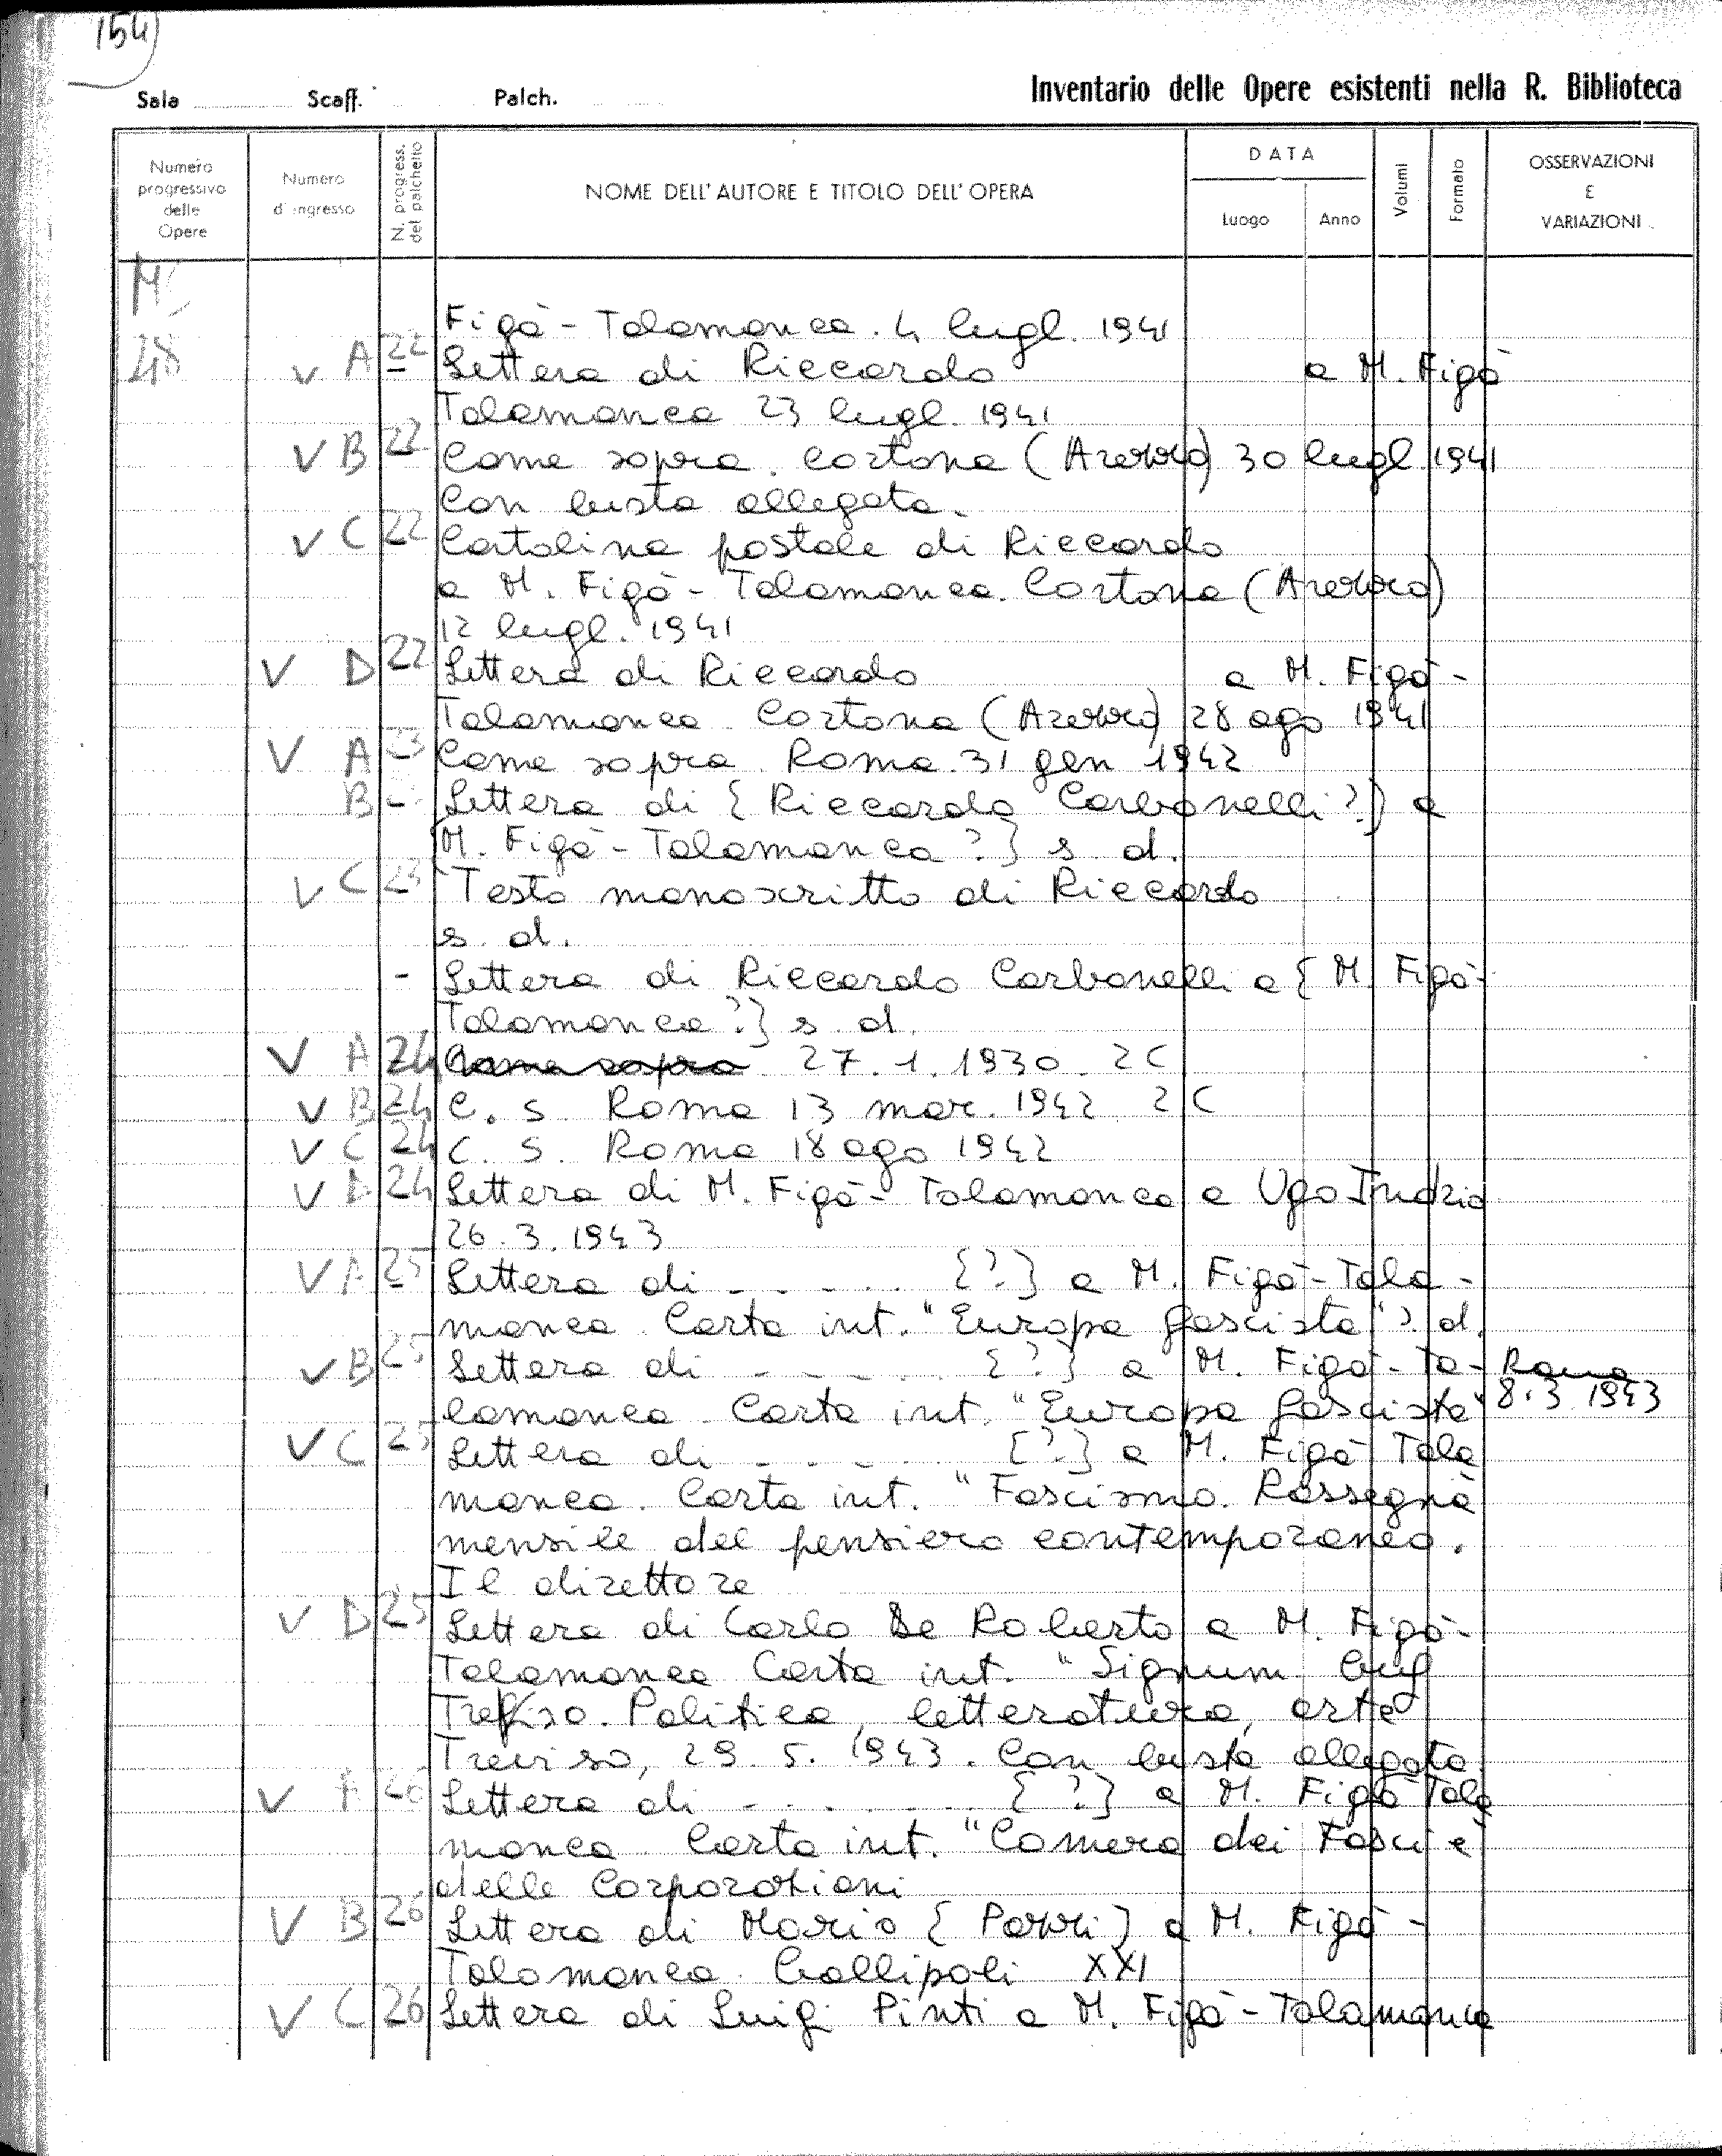 154)
Inventario delle Opere esistenti nella R. Biblioteca
Sala Scaff. Palch.
Numero progressivo delle Opere
Numero d'ingresso
N. progress. del palchetto
NOME DELL'AUTORE E TITOLO DELL'OPERA
DATA
Luogo Anno
Volumi
Formato
OSSERVAZIONI E VARIAZIONI
Figà-Talamanca. 4 lugl. 1941
48 V A 22 Lettera di Riccardo a M. Figà
Talamanca 23 lugl. 1941
V B 22 Come sopra. Cortona (Arezzo) 30 lugl 1941
Con busta allegata.
V C 22 Cartolina postale di Riccardo
a M. Figà-Talamanca. Cortona (Arezzo)
12 lugl. 1941
V D 22 Lettera di Riccardo a M. Figà-
Talamanca Cortona (Arezzo) 28 ago 1941
V A 23 Come sopra. Roma. 31 gen 1942
B - Lettera di [Riccardo Carbonelli?] a
[M. Figà-Talamanca?] s. d.
V C 23 Testo manoscritto di Riccardo
s. d.
- Lettera di Riccardo Carbonelli a [M. Figà-
Talamanca?] s. d.
V A 24 Come sopra 27.1.1930. 2C
V B 24 C. S. Roma 13 mar. 1942 2C
V C 24 C. S. Roma 18 ago 1942
V D 24 Lettera di M. Figà-Talamanca a Ugo Indrio
26.3.1943
V A 25 Lettera di - - - - - [?] a M. Figà-Tala-
manca. Carta int. "Europa fascista" s. d.
V B 25 Lettera di - - - - - [?] a M. Figà-Ta- Roma
lamanca. Carta int. "Europa fascista" 8.3.1943
V C 25 Lettera di - - - - [?] a M. Figà Tala
manca. Carta int. "Fascismo. Rassegna
mensile del pensiero contemporaneo.
Il direttore
V D 25 Lettera di Carlo De Roberto a M. Figà-
Talamanca Carta int. "Signum Guf
Treviso. Politica, letteratura, arte"
Treviso, 29.5.1943. Con busta allegata
V A 26 Lettera di - - - - - [?] a M. Figà Tala
manca Carta int. "Camera dei Fasci e
delle Corporazioni
V B 26 Lettera di Mario [Pozzi] a M. Figà-
Talamanca. Gallipoli XXI
V C 26 Lettera di Luigi Pinti a M. Figà-Talamanca